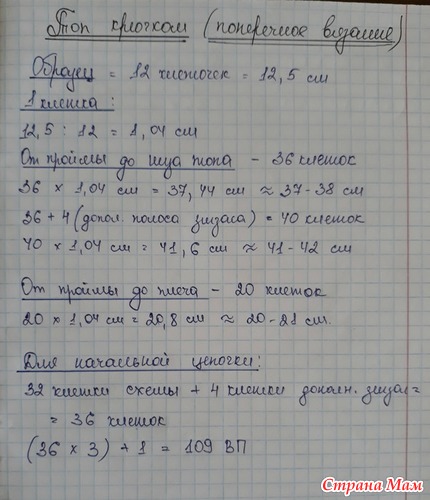 Топ крючком (поперечное вязание)
Образец = 12 клеточек = 12,5 см
1 клетка:
12,5 : 12 = 1,04 см
От проймы до низа топа - 36 клеток
36 × 1,04 см = 37,44 см ≈ 37-38 см
36 + 4 (допол. полоса зигзага) = 40 клеток
40 × 1,04 см = 41,6 см ≈ 41-42 см
От проймы до плеча - 20 клеток
20 × 1,04 см = 20,8 см ≈ 20-21 см.
Для начальной цепочки:
32 клетки схемы + 4 клетки дополн. зигзаг =
= 36 клеток
(36 × 3) + 1 = 109 ВП
Страна Мам